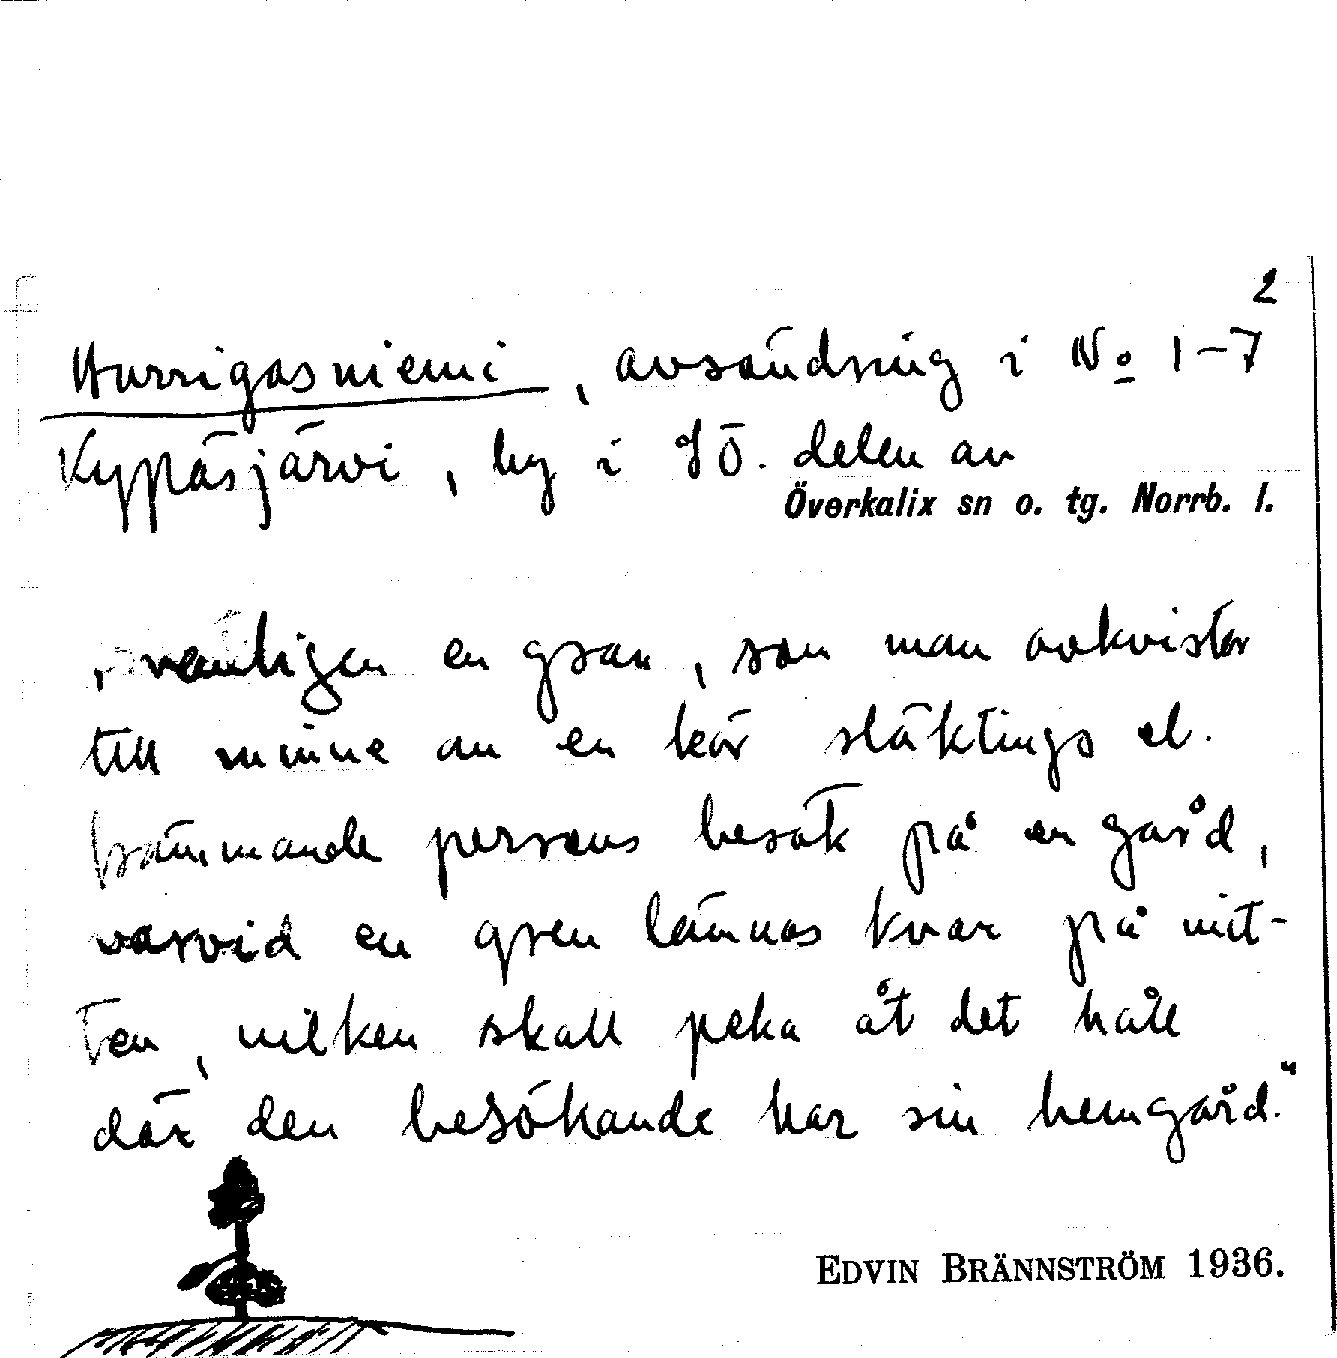 2
Hurrigasniemi, avsöndring i No 1-7
Kypäsjärvi, by i SÖ. delen av
Överkalix sn o. tg. Norrb. l.
, vanligen en gran, som man avkvistar
till minne av en kär släktings el.
främmande persons besök på en gård,
varvid en gren lämnas kvar på mit-
ten, vilken skall peka åt det håll
där den besökande har sin hemgård."
EDVIN BRÄNNSTRÖM 1936.